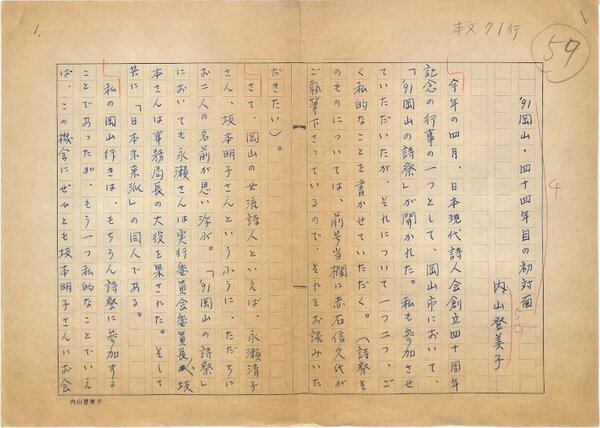 1.
本文 71行
59
'91岡山・四十四年目の初対面
4
内山登美子
今年の四月、日本現代詩人会創立四十周年
記念の行事の一つとして、岡山市において、
「'91岡山の詩祭」が開かれた。私も参加させ
ていただいたが、それについて一つ二つ、ご
く私的なことを書かせていただく。(詩祭そ
のものについては、前号当欄に赤石信久氏が
ご執筆下さっているので、それをお読みいた
だきたい)。
さて、岡山の女流詩人といえば、永瀬清子
さん、坂本明子さんというふうに、ただちに
お二人の名前が思い浮ぶ。「'91岡山の詩祭」
においても永瀬さんは実行委員会委員長、坂
本さんは事務局長の大役を果された。そして
共に「日本未来派」の同人である。
私の岡山行きは、もちろん詩祭に参加する
ことであったが、もう一つ私的なことでいえ
ば、この機会にぜひとも坂本明子さんにお会
内山登美子